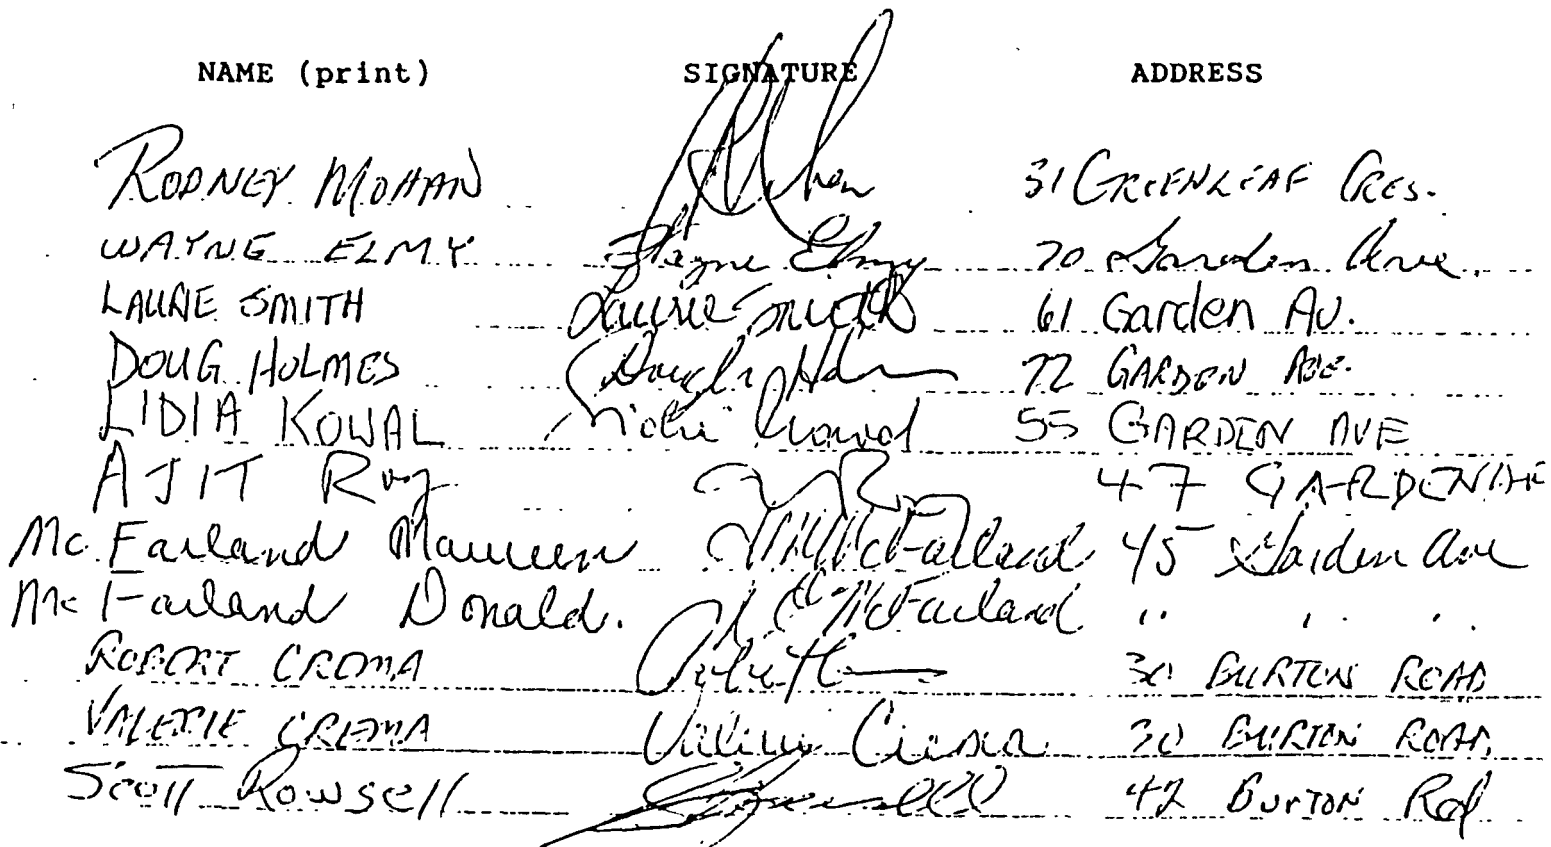 NAME (print) SIGNATURE ADDRESS
RODNEY MOHAN 31 GREENLEAF CRES.
WAYNE ELMY Wayne Elmy 70 Garden Ave.
LAURIE SMITH Laurie Smith 61 Garden Av.
DOUG HOLMES 72 GARDEN AVE.
LIDIA KOWAL Lidia Kowal 55 GARDEN AVE
AJIT Roy 47 GARDEN AVE
McFarland Maureen McFarland 45 Garden Ave
McFarland Donald. McFarland " " "
ROBERT CREMA 30 BURTON ROAD
VALERIE CREMA Valerie Crema 30 BURTON ROAD.
Scott Rowsell 42 BURTON Rd